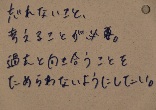 忘れないこと、
考えることが必要。
過去と向き合うことを
ためらわないようにしたい。